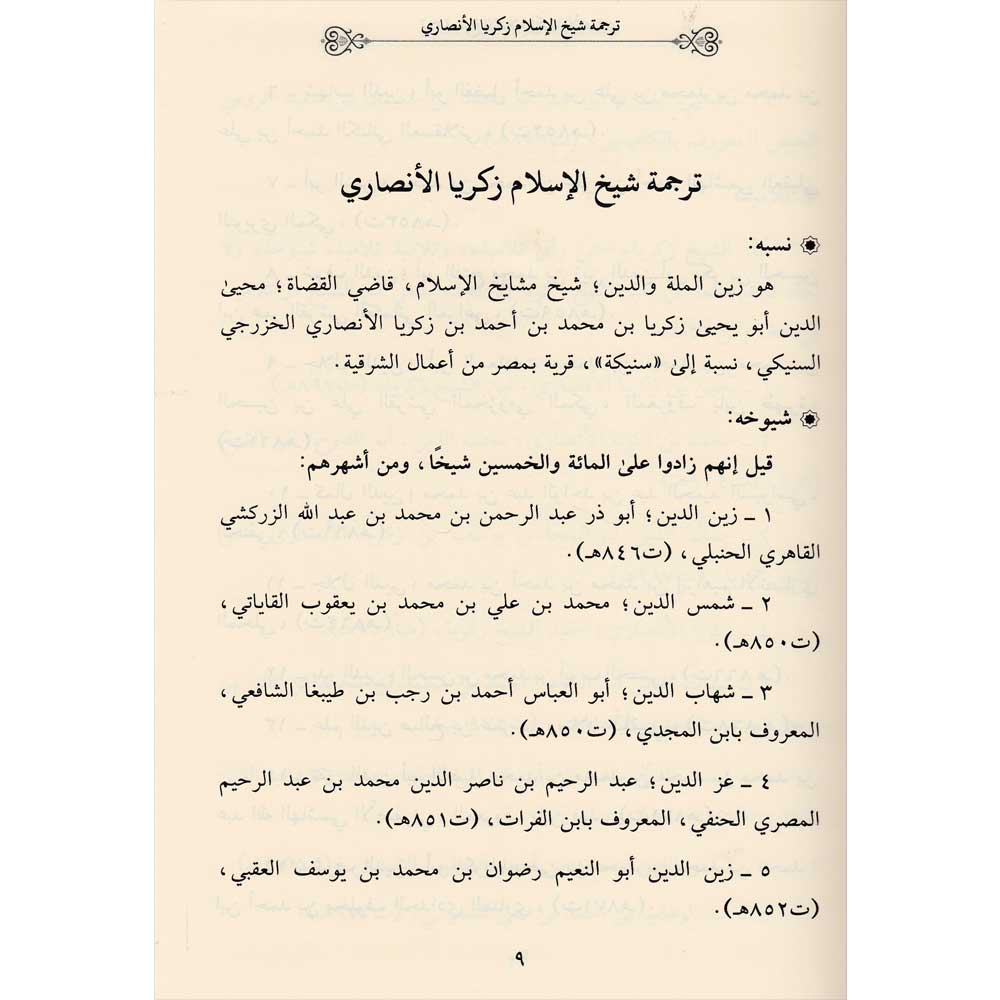 ترجمة شيخ الإسلام زكريا الأنصاري
ترجمة شيخ الإسلام زكريا الأنصاري
نسبه:
هو زين الملة والدين؛ شيخ مشايخ الإسلام، قاضي القضاة؛ محيىٰ
الدين أبو يحيىٰ زكريا بن محمد بن أحمد بن زكريا الأنصاري الخزرجي
السنيكي، نسبة إلىٰ «سنيكة»، قرية بمصر من أعمال الشرقية.
شيوخه:
قيل إنهم زادوا علىٰ المائة والخمسين شيخًا، ومن أشهرهم:
١ ـ زين الدين؛ أبو ذر عبد الرحمن بن محمد بن عبد الله الزركشي
القاهري الحنبلي، (ت٨٤٦هـ).
٢ ـ شمس الدين؛ محمد بن علي بن محمد بن يعقوب القاياتي،
(ت٨٥٠هـ).
٣ ـ شهاب الدين؛ أبو العباس أحمد بن رجب بن طيبغا الشافعي،
المعروف بابن المجدي، (ت٨٥٠هـ).
٤ ـ عز الدين؛ عبد الرحيم بن ناصر الدين محمد بن عبد الرحيم
المصري الحنفي، المعروف بابن الفرات، (ت٨٥١هـ).
٥ ـ زين الدين أبو النعيم رضوان بن محمد بن يوسف العقبي،
(ت٨٥٢هـ).
٩